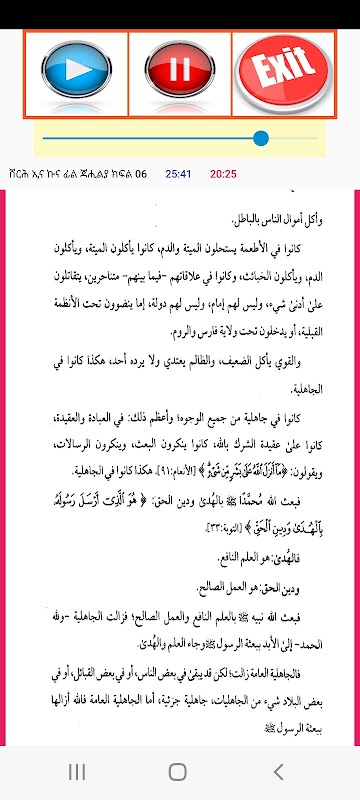 Exit
ሸርሕ ኢና ኩና ፊል ጃሒልያ ክፍል 06 25:41 20:25
وأكل أموال الناس بالباطل.
كانوا في الأطعمة يستحلون الميتة والدم، كانوا يأكلون الميتة، ويأكلون
الدم، ويأكلون الخبائث، وكانوا في علاقاتهم -فيما بينهم- متناحرين، يتقاتلون
على أدنى شيء، وليس لهم إمام، وليس لهم دولة، إما ينضوون تحت الأنظمة
القبلية، أو يدخلون تحت ولاية فارس والروم.
والقوي يأكل الضعيف، والظالم يعتدي ولا يرده أحد، هكذا كانوا في
الجاهلية.
كانوا في جاهلية من جميع الوجوه؛ وأعظم ذلك: في العبادة والعقيدة،
كانوا على عقيدة الشرك بالله، كانوا ينكرون البعث، وينكرون الرسالات،
ويقولون: ﴿مَا أَنزَلَ اللَّهُ عَلَىٰ بَشَرٍ مِّن شَيْءٍ﴾ [الأنعام:٩١]. هكذا كانوا في الجاهلية.
فبعث الله مُحمَّدًا ﷺ بالهُدى ودين الحق: ﴿هُوَ الَّذِي أَرْسَلَ رَسُولَهُ
بِالْهُدَىٰ وَدِينِ الْحَقِّ﴾ [التوبة:٣٣].
فالهُدى: هو العلم النافع.
ودين الحق: هو العمل الصالح.
فبعث الله نبيه ﷺ بالعلم النافع والعمل الصالح؛ فزالت الجاهلية -ولله
الحمد- إلى الأبد ببعثة الرسول ﷺ وجاء العلم والهُدى.
فالجاهلية العامة زالت؛ لكن قد يبقى في بعض الناس، أو في بعض القبائل، أو في
بعض البلاد شيء من الجاهليات، جاهلية جزئية، أما الجاهلية العامة فالله أزالها
ببعثة الرسول ﷺ